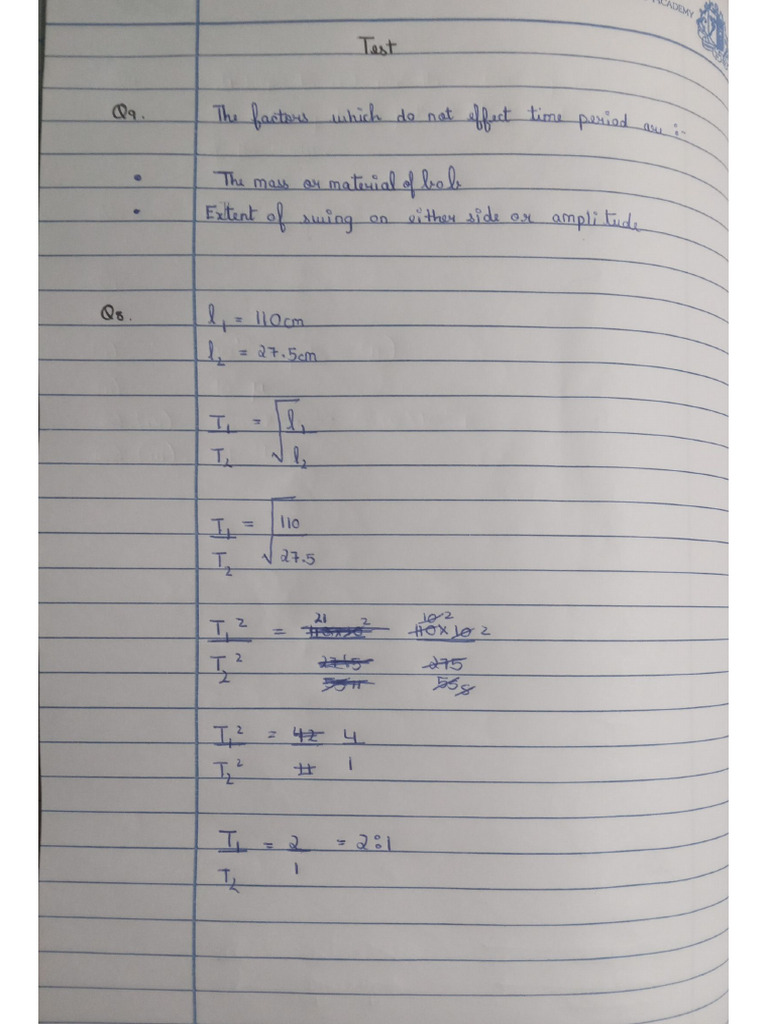 ACADEMY
Test
Q9. The factors which do not effect time period are :-
• The mass or material of bob
• Extent of swing on either side or amplitude
Q8. l₁ = 110cm
l₂ = 27.5cm
T₁/T₂ = √(l₁/l₂)
T₁/T₂ = √(110/27.5)
T₁²/T₂² = 110×10 2 / 275
T₁²/T₂² = 4/1
T₁/T₂ = 2/1 = 2:1